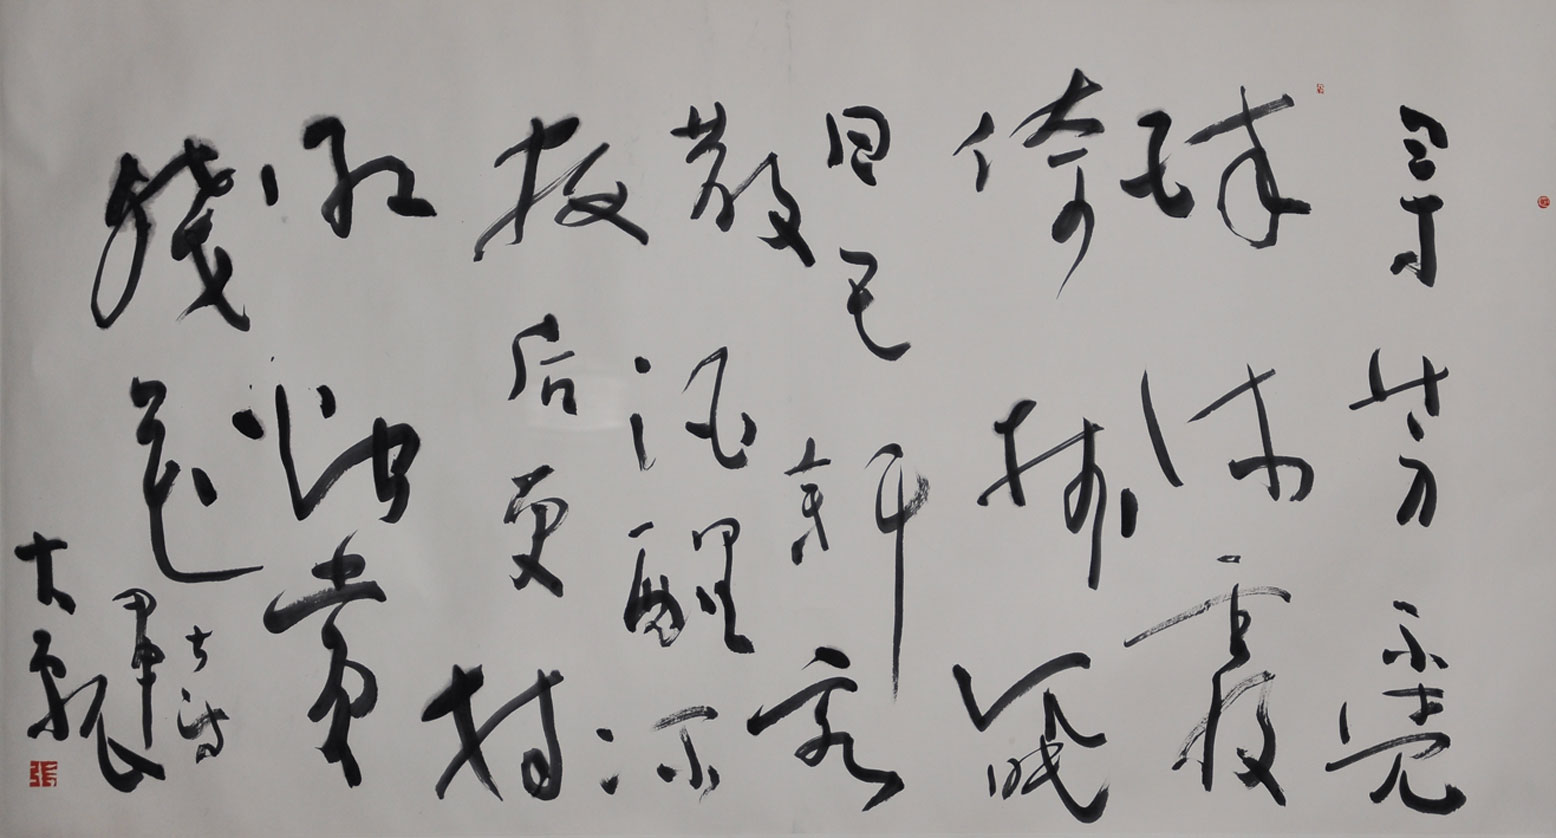 寻芳不觉
醉流霞
倚树沉眠
日已斜客
散酒醒深
夜后更持
红烛赏
残花
甲申
张